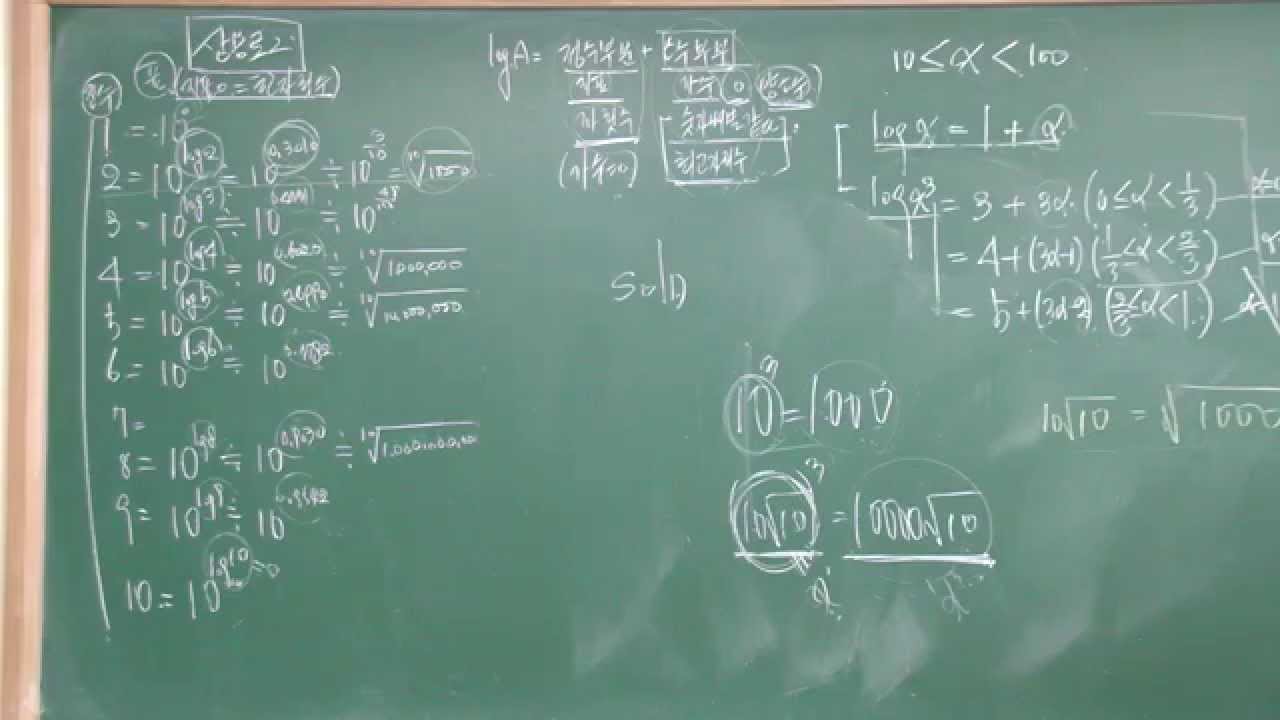 상용로그
1 = 10⁰
2 = 10^log2 ≒ 10^0.3010 ≒ 10^(3/10) = ¹⁰√1000
3 = 10^log3 ≒ 10
4 = 10^log4 ≒ 10^0.6020 ≒ ¹⁰√1,000,000
5 = 10^log5 ≒ 10 ≒ ¹⁰√10,000,000
6 = 10^log6 ≒ 10
7 =
8 = 10^log8 ≒ 10^0.9030 ≒ ¹⁰√1,000,000,000
9 = 10^log9 ≒ 10^0.9542
10 = 10^log10
log A = 정수부분 + 소수부분
지표
가수 0
자릿수
숫자배열 같다
최고자리수
sol)
10 ≤ x < 100
log x = 1 + α
log x³ = 3 + 3α (0 ≤ α < 1/3)
= 4 + (3α-1) (1/3 ≤ α < 2/3)
= 5 + (3α-2) (2/3 ≤ α < 1)
10³ = 1000
(10√10)³ = 10000√10
10√10 = √1000